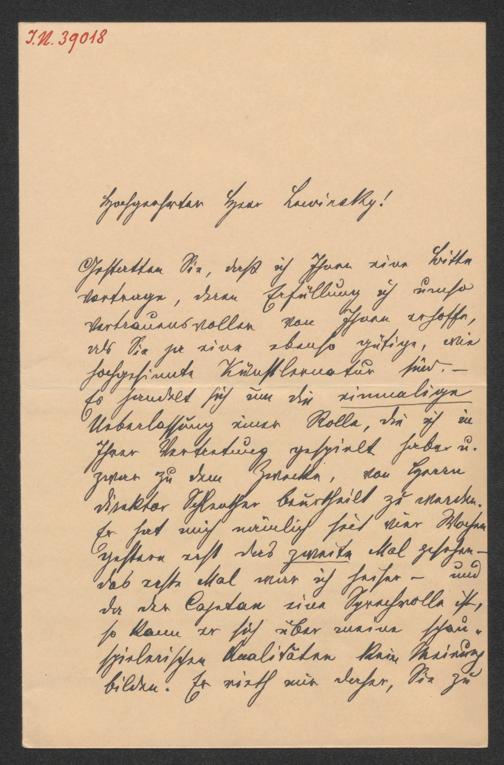 I.N. 39018
Hochgeehrter Herr Lewinsky!
Gestatten Sie, daß ich Ihnen eine Bitte
vortrage, deren Erfüllung ich umso
vertrauensvoller von Ihnen erhoffe,
als Sie ja eine ebenso gütige, wie
hochgesinnte Künstlernatur sind. –
Es handelt sich um die einmalige
Ueberlassung einer Rolle, die ich in
Ihrer Vertretung gespielt habe u.
zwar zu dem Zwecke, von Herrn
Direktor Schlenther beurtheilt zu werden.
Er hat mich nämlich seit vier Wochen
gestern erst das zweite Mal gesehen –
das erste Mal war ich heiser – und
da der Cajetan eine Sprechrolle ist,
so kann er sich über meine schau-
spielerischen Qualitäten kein Meinung
bilden. Er rieth mir daher, Sie zu